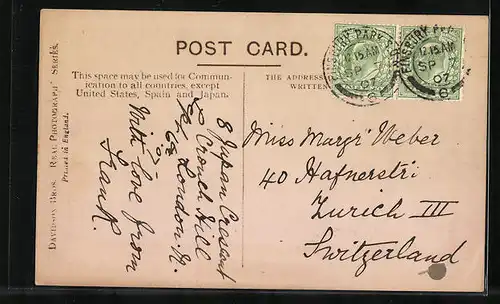 POST CARD.
This space may be used for Commun-
ication to all countries, except
United States, Spain and Japan.
THE ADDRESS
WRITTEN
DAVIDSON BROS. REAL PHOTOGRAPHIC SERIES.
Printed in England.
FINSBURY PARK S.
12.15 AM
SP
FINSBURY PARK
12.15 AM
SP
07
8 Japan Crescent
Crouch Hill
London N.
With love from
Frank.
Miss Margr Weber
40 Hafnerstr
Zurich III
Switzerland